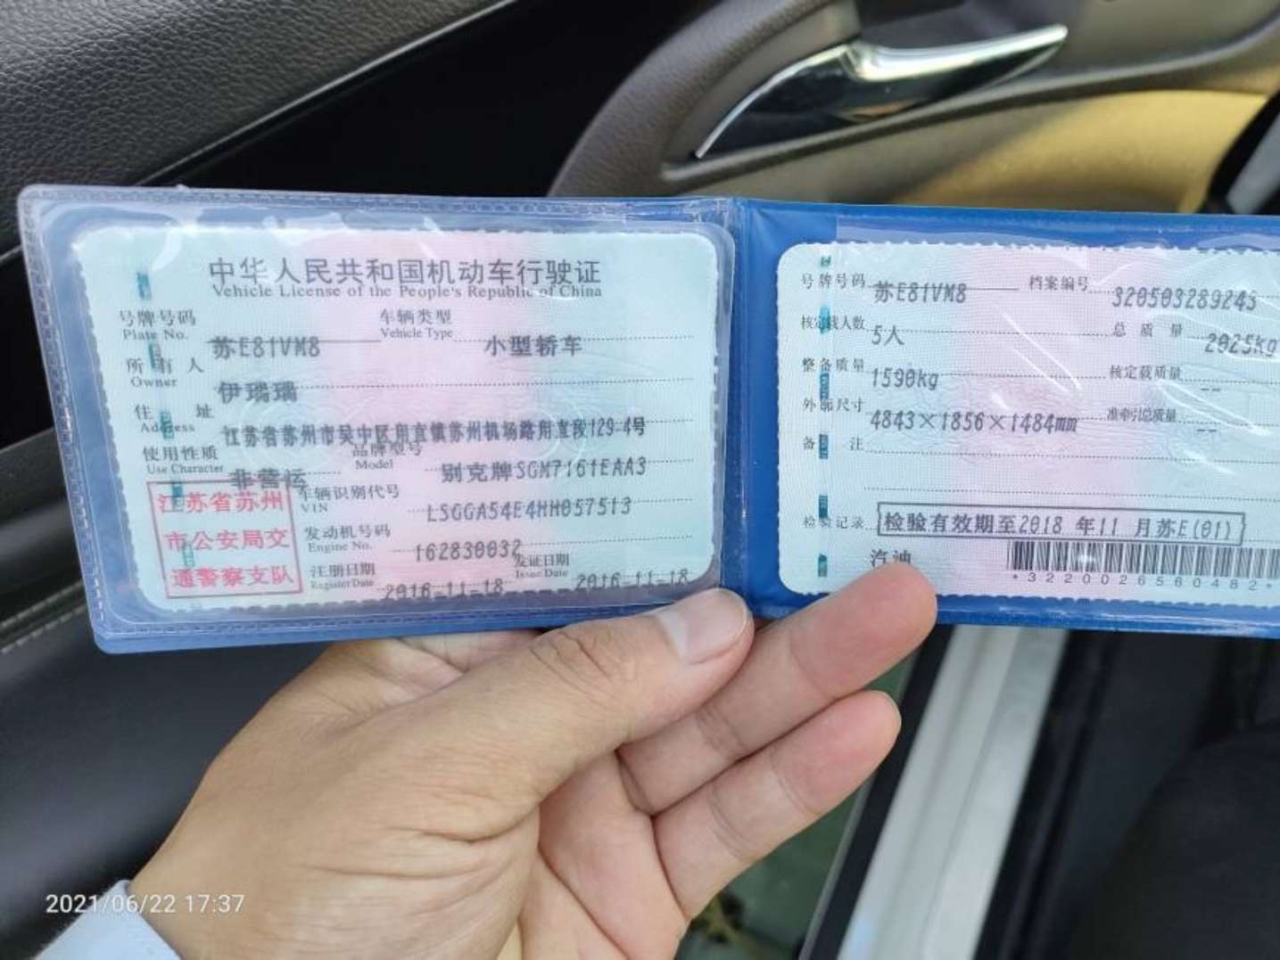 中华人民共和国机动车行驶证
Vehicle License of the People's Republic of China
号牌号码 苏E81VM8 车辆类型 小型轿车
Plate No. Vehicle Type
所有人 伊瑞瑞
Owner
住址 江苏省苏州市吴中区甪直镇苏州机场路甪直段129-4号
Address
使用性质 非营运 品牌型号 别克牌SGM7161EAA3
Use Character Model
江苏省苏州
市公安局交
通警察支队
车辆识别代号 LSGGA54E4HH057513
VIN
发动机号码 162830032
Engine No.
注册日期 2016-11-18 发证日期 2016-11-18
Register Date Issue Date
号牌号码 苏E81VM8 档案编号 320503289245
核定载人数 5人 总质量 2025kg
整备质量 1590kg 核定载质量 --
外廓尺寸 4843×1856×1484mm 准牵引总质量 --
备注
检验记录 检验有效期至2018 年11 月苏E(01)
汽油
*3220026560482*
2021/06/22 17:37